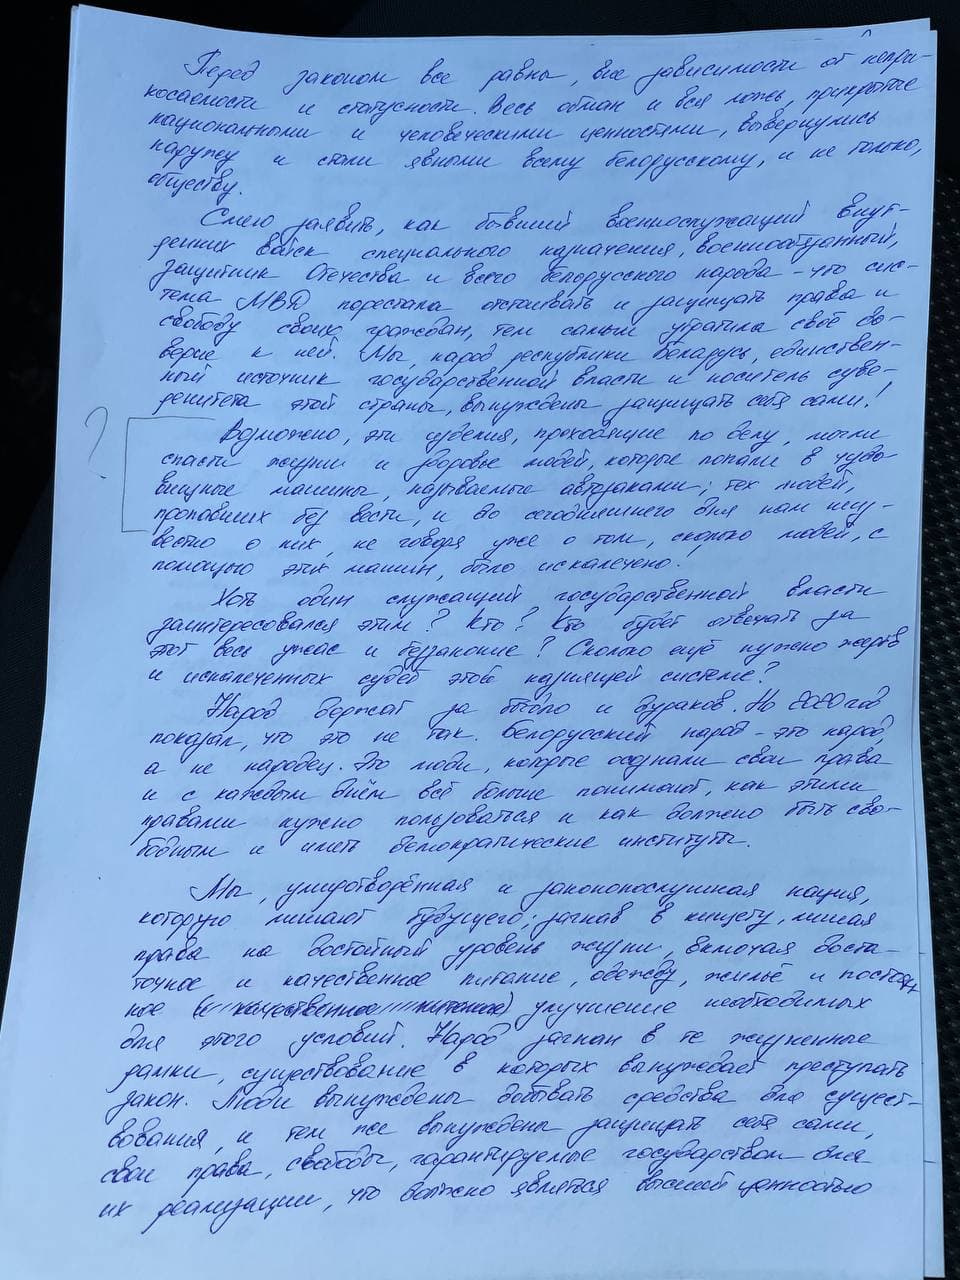 Перед законом все равны, вне зависимости от непри-
косаемости и статусности. Весь обман и вся ложь, прикрытые
национальными и человеческими ценностями, вывернулись
наружу и стали явными всему белорусскому, и не только,
обществу.
Смею заявить, как бывший военнослужащий внут-
ренних войск специального назначения, военнообязанный,
защитник Отечества и всего белорусского народа - что сис-
тема МВД перестала отстаивать и защищать права и
свободу своих граждан, тем самым утратила своё до-
верие к ней. Мы, народ республики Беларусь, единствен-
ный источник государственной власти и носитель суве-
ренитета этой страны, вынуждены защищать себя сами!
?
Возможно, эти изделия, проходящие по делу, могли
спасти жизни и здоровье людей, которые попали в чудо-
вищные машины, называемые автозаками; тех людей,
пропавших без вести, и до сегодняшнего дня нам неиз-
вестно о них, не говоря уже о том, сколько людей, с
помощью этих машин, было искалечено.
Хоть один служащий государственной власти
заинтересовался этим? Кто? Кто будет отвечать за
этот весь ужас и беззаконие? Сколько ещё нужно жертв
и искалеченных судеб этой казнящей системе?
Народ держат за быдло и дураков. Но 2020 год
показал, что это не так. Белорусский народ - это народ,
а не народец. Это люди, которые осознали свои права
и с каждым днём всё больше понимают, как этими
правами нужно пользоваться и как должно быть сво-
бодным и иметь демократические институты.
Мы, умиротворённая и законопослушная нация,
которую лишают будущего; загнав в нищету, лишая
права на достойный уровень жизни, включая доста-
точное и качественное питание, одежду, жильё и постоян-
ное (и качественное питание) улучшение необходимых
для этого условий. Народ загнан в те жизненные
рамки, существование в которых вынуждает преступать
закон. Люди вынуждены добывать средства для сущест-
вования, и тем же вынуждены защищать себя сами,
свои права, свободы, гарантируемые государством для
их реализации, что должно являться высшей ценностью